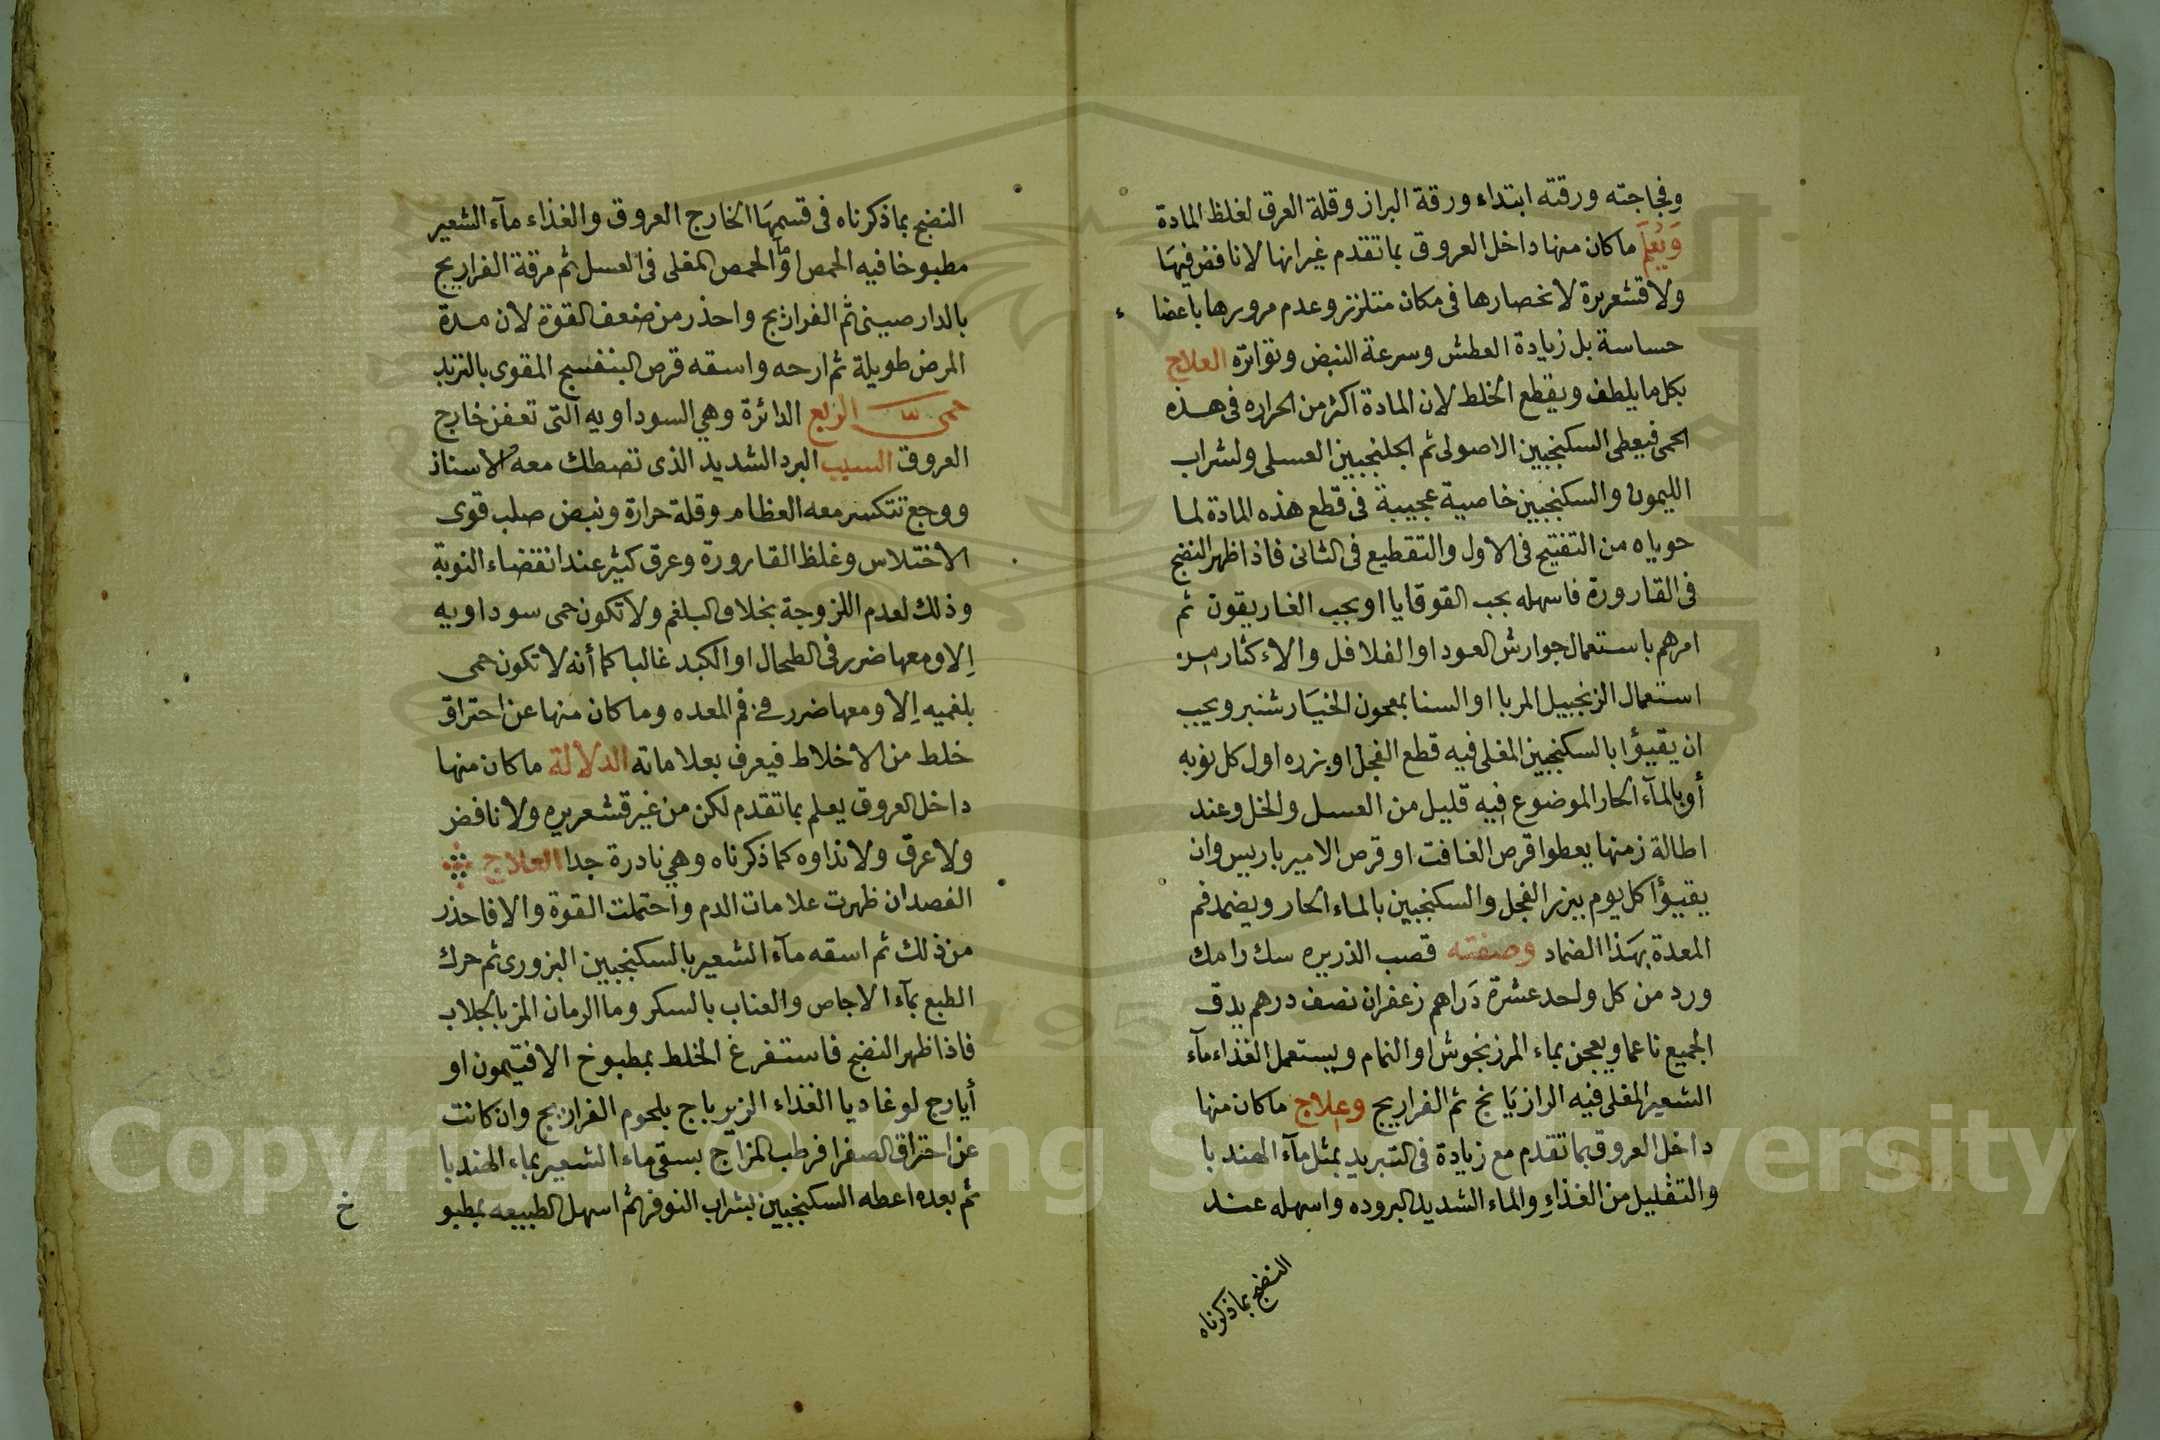 وفجاجته ورقته ابتداء ورقة البراز وقلة العرق لغلظ المادة
وَيُعلَم ماكان منها داخل العروق بما تقدم غير انها لا نافض فيهَا
ولا قشعريرة لانحصارها في مكان متلزز وعدم مرورها باعضا ء
حساسة بل زيادة العطش وسرعة النبض وتواتره العلاج
بكل ما يلطف ويقطع الخلط لان المادة اكثر من الحراره في هذه
الحمى فيعطى السكنجبين الاصولى ثم الجلنجبين العسلى ولشراب
الليمون والسكنجبين خاصية عجيبة في قطع هذه المادة لما
حوياه من التفتيح في الاول والتقطيع في الثانى فاذا ظهر النضج
في القارورة فاسهله بحب القوقايا او بحب الغاريقون ثم
امرهم باستعمال جوارش العود او الفلافل والاءكثار من
استعمال الزنجبيل المربا او السنا بمعجون الخيَار شنبر ويجب
ان يقيؤا بالسكنجبين المغلى فيه قطع الفجل او بزره اول كل نوبه
أو بالمآء الحار الموضوع فيه قليل من العسل والخل وعند
اطالة زمنها يعطوا قرص الغافت او قرص الامير باريس وان
يقيؤا كل يوم ببزر الفجل والسكنجبين بالماء الحار ويضمد فم
المعدة بهَذا الضماد وصفته قصب الذريره سك رامك
ورد من كل واحد عشرة دَراهم زعفران نصف درهم يدق
الجميع ناعما ويعجن بماء المرزنجوش او النمام ويستعمل الغذاء مآء
الشعير المغلى فيه الرازيَا نج ثم الفراريج وعلاج ماكان منها
داخل العروق بما تقدم مع زيادة في التبريد بمثل مآء الهندبا
والتقليل من الغذاءِ والماء الشديد البروده واسهله عند
النضج بما ذكرناه
النضج بما ذكرناه في قسيمهَا الخارج العروق والغذاء مآء الشعير
مطبوخا فيه الحمص او الحمص المغلى في العسل ثم مرقة الفراريج
بالدارصينى ثم الفراريج واحذر من ضعف القوة لان مدة
المرض طويلة ثم ارحه واسقه قرص البنفسج المقوى بالتربد
حمى الربع الدائرة وهي السوداويه التى تعفن خارج
العروق السبب البرد الشديد الذى تصطك معه الاسنان
ووجع تتكسر معه العظام وقلة حرارة ونبض صلب قوى
الاختلاس وغلظ القارورة وعرق كثير عند انقضاء النوبة
وذلك لعدم اللزوجة بخلاف البلغم ولا تكون حمى سوداويه
إلا ومعها ضرر في الطحال او الكبد غالبا كما أنه لا تكون حمى
بلغميه إلا ومعها ضرر في فم المعده وما كان منها عن احتراق
خلط من الاخلاط فيعرف بعلاماته الدلالة ماكان منها
داخل العروق يعلم بما تقدم لكن من غير قشعريره ولا نافض
ولا عرق ولا نداوه كما ذكرناه وهي نادرة جدا العلاج
الفصد ان ظهرت علامات الدم واحتملت القوة والا فاحذر
من ذلك ثم اسقه مآء الشعير بالسكنجبين البزورى ثم حرك
الطبع بمآء الاجاص والعناب بالسكر وما الرمان المز بالجلاب
فاذا ظهر النضج فاستفرغ الخلط بمطبوخ الافتيمون او
أيارج لوغاديا الغذاء الزيرباج بلحوم الفراريج وان كانت
عن احتراق الصفرا فرطب المزاج بسقى ماء الشعير بماء الهندبا
ثم بعده اعطه السكنجبين بشراب النوفر ثم اسهل الطبيعه بمطبو
خ
Copyright © King Saud University